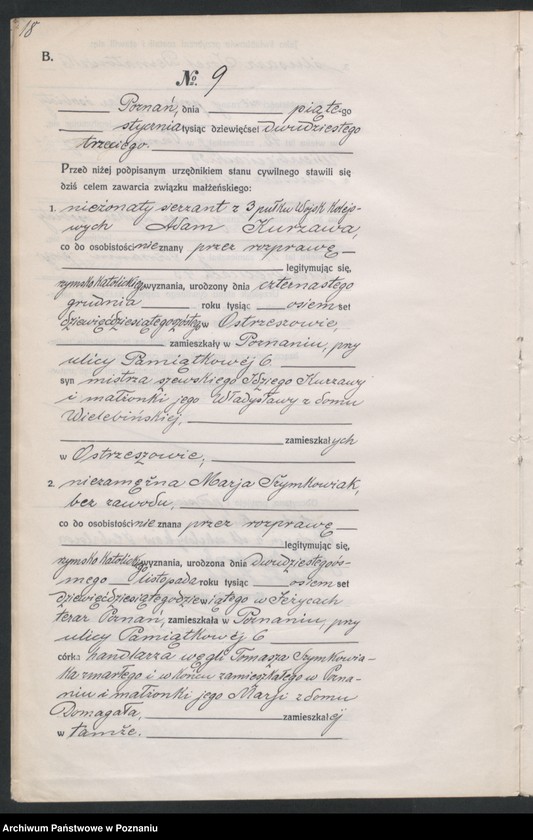 18
B.
No. 9
Poznań, dnia piątego
stycznia tysiąc dziewięćset dwudziestego
trzeciego.
Przed niżej podpisanym urzędnikiem stanu cywilnego stawili się
dziś celem zawarcia związku małżeńskiego:
1. nieżonaty sierżant z 3 pułku Wojsk Kolejo-
wych Adam Kurzawa,
co do osobistości nie znany przez rozprawę
legitymując się,
rzymsko katolickiego wyznania, urodzony dnia czternastego
grudnia roku tysiąc osiemset
dziewięćdziesiątego szóstego w Ostrzeszowie,
zamieszkały w Poznaniu, przy
ulicy Pamiątkowéj 6
syn mistrza szewskiego Idziego Kurzawy
i małżonki jego Władysławy z domu
Wielebińskiéj,
zamieszkałych
w Ostrzeszowie;
2. niezamężna Marja Szymkowiak,
bez zawodu,
co do osobistości nie znana przez rozprawę
legitymując się,
rzymsko katolickiego wyznania, urodzona dnia dwudziestego ós-
mego listopada roku tysiąc osiemset
dziewięćdziesiątego dziewiątego w Jeżycach
teraz Poznań, zamieszkała w Poznaniu, przy
ulicy Pamiątkowéj 6
córka handlarza węgli Tomasza Szymkowia-
ka zmarłego i w końcu zamieszkałego w Pozna-
niu i małżonki jego Marji z domu
Domagała, zamieszkałéj
w tamże.
Archiwum Państwowe w Poznaniu